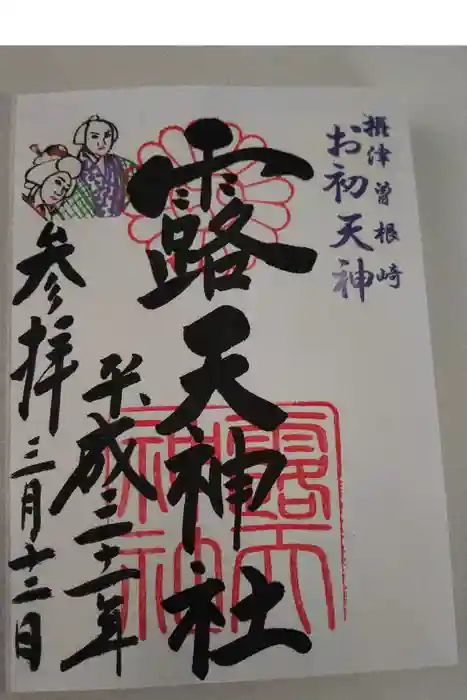 摂津曽根崎
お初天神
露天神社
平成三十一年
三月十二日
参拝
露天
神社